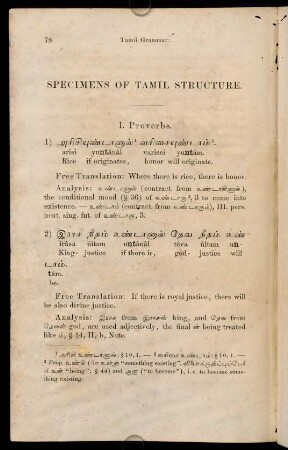 78 Tamil Grammar:
SPECIMENS OF TAMIL STRUCTURE.
I. Proverbs.
1) அரிசியுண்டானால்¹ வரிசையுண்டாம்².
arisi yuntānāl varisei yuntām.
Rice if originates, honor will originate.
Free Translation: Where there is rice, there is honor.
Analysis: உண்டானால் (contract from உண்டாகினால்),
the conditional mood (§ 36) of உண்டாகு³, 3 to come into
existence. — உண்டாம் (contract from உண்டாகும்), III. pers-
pent. sing. fut. of உண்டாகு, 3.
2) இராச நீதம் உண்டானால் தேவ நீதம் உண்
irāsa nītam untānāl tēva nītam un-
King- justice if there is, god- justice will
டாம்.
tām.
be.
Free Translation: If there is royal justice, there will
be also divine justice.
Analysis: இராச from இராசன் king, and தேவ from
தேவன் god, are used adjectively, the final ன் being treated
like ம், § 14, II, b, Note.
¹ அரிசி உண்டானால்; § 10, 1. — ² வரிசை உண்டாம்; § 10, 1. —
³ Prop. உண்டு (for உள்து "something existing",
of உள் "being"; § 44) and ஆகு ("to become"), i. e. to become some-
thing existing.